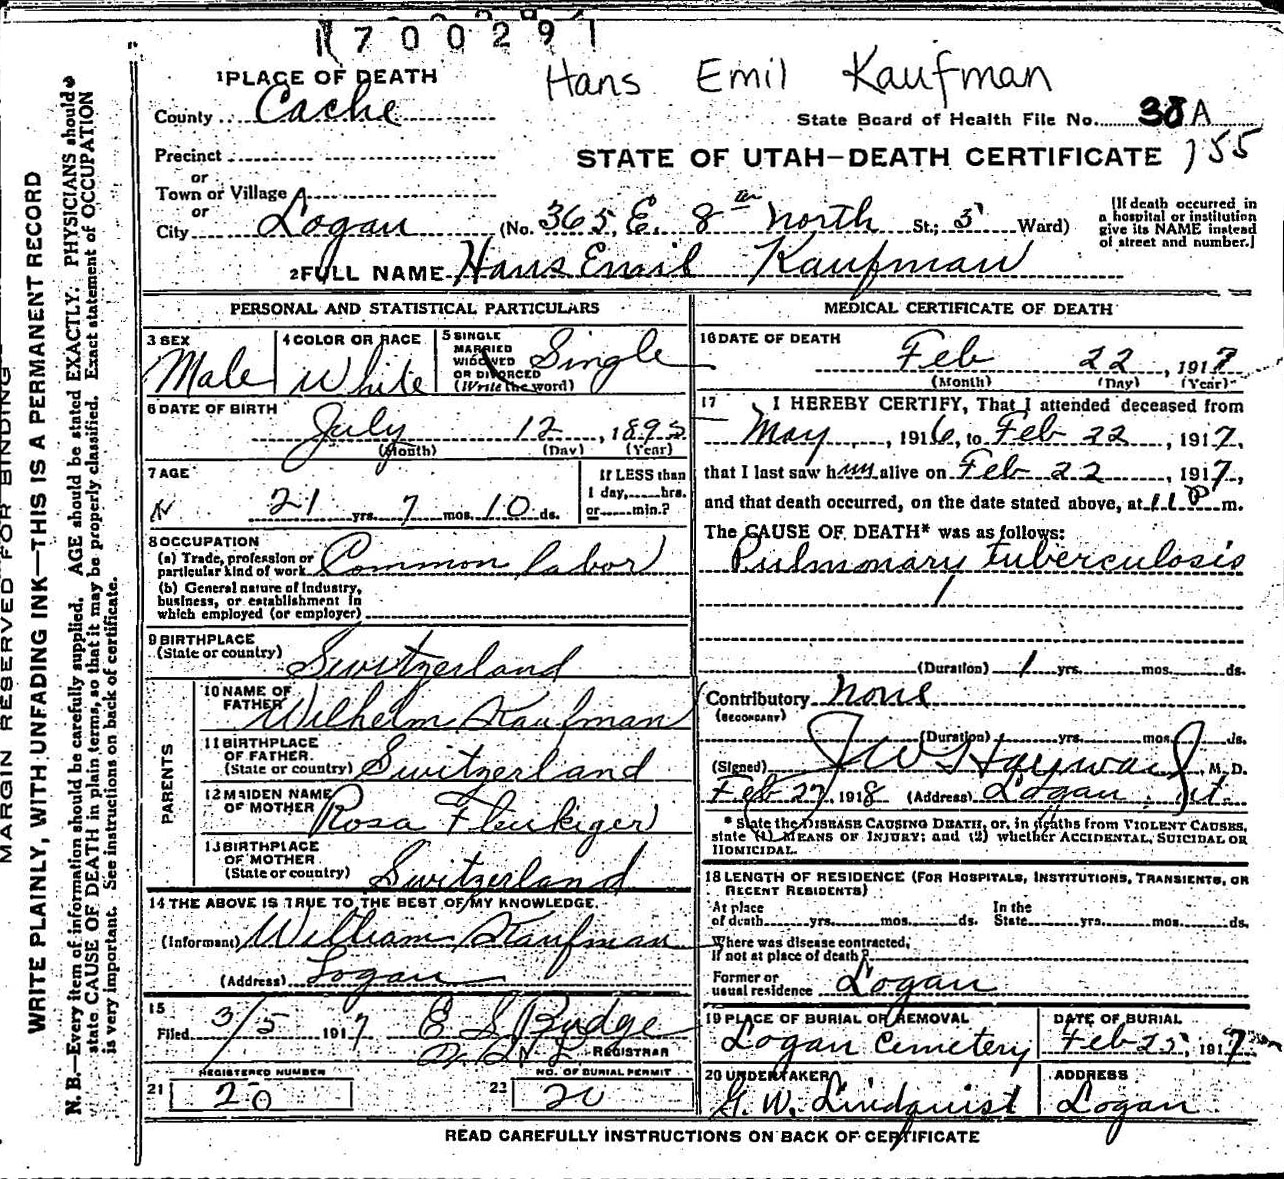 1700291
Hans Emil Kaufman
1 PLACE OF DEATH
County Cache
State Board of Health File No. 38 A
Precinct
STATE OF UTAH—DEATH CERTIFICATE 155
or
Town or Village
or
City Logan (No. 365 E. 8th north St.; 5 Ward)
[If death occurred in
a hospital or institution
give its NAME instead
of street and number.]
2 FULL NAME Hans Emil Kaufman
PERSONAL AND STATISTICAL PARTICULARS
3 SEX
Male
4 COLOR OR RACE
White
5 SINGLE
MARRIED
WIDOWED
OR DIVORCED
(Write the word)
Single
6 DATE OF BIRTH
July 12, 1895
(Month) (Day) (Year)
7 AGE
21 yrs. 7 mos. 10 ds.
If LESS than
1 day, hrs.
or min.?
8 OCCUPATION
(a) Trade, profession or
particular kind of work Common labor
(b) General nature of industry,
business, or establishment in
which employed (or employer)
9 BIRTHPLACE
(State or country) Switzerland
PARENTS
10 NAME OF
FATHER Wilhelm Kaufman
11 BIRTHPLACE
OF FATHER.
(State or country) Switzerland
12 MAIDEN NAME
OF MOTHER Rosa Fleukiger
13 BIRTHPLACE
OF MOTHER
(State or country) Switzerland
14 THE ABOVE IS TRUE TO THE BEST OF MY KNOWLEDGE.
(Informant) William Kaufman
(Address) Logan
15
Filed 3/5 1917 E S Budge
REGISTRAR
REGISTERED NUMBER
21 20
NO. OF BURIAL PERMIT
22 20
MEDICAL CERTIFICATE OF DEATH
16 DATE OF DEATH
Feb 22, 1917
(Month) (Day) (Year)
17 I HEREBY CERTIFY, That I attended deceased from
May, 1916, to Feb 22, 1917,
that I last saw him alive on Feb 22, 1917,
and that death occurred, on the date stated above, at 11 P m.
The CAUSE OF DEATH* was as follows:
Pulmonary tuberculosis
(Duration) 1 yrs. mos. ds.
Contributory none
(SECONDARY)
(Duration) yrs. mos. ds.
(Signed) J W Hayward, M. D.
Feb 27, 1918 (Address) Logan Ut.
* State the DISEASE CAUSING DEATH, or, in deaths from VIOLENT CAUSES,
state (1) MEANS OF INJURY; and (2) whether ACCIDENTAL, SUICIDAL OR
HOMICIDAL.
18 LENGTH OF RESIDENCE (FOR HOSPITALS, INSTITUTIONS, TRANSIENTS, OR
RECENT RESIDENTS)
At place
of death yrs. mos. ds.
In the
State yrs. mos. ds.
Where was disease contracted,
if not at place of death?
Former or
usual residence Logan
19 PLACE OF BURIAL OR REMOVAL
Logan Cemetery
DATE OF BURIAL
Feb 25, 1917
20 UNDERTAKER
G. W. Lindquist
ADDRESS
Logan
READ CAREFULLY INSTRUCTIONS ON BACK OF CERTIFICATE
MARGIN RESERVED FOR BINDING
WRITE PLAINLY, WITH UNFADING INK—THIS IS A PERMANENT RECORD
N. B.—Every item of information should be carefully supplied. AGE should be stated EXACTLY. PHYSICIANS should
state CAUSE OF DEATH in plain terms, so that it may be properly classified. Exact statement of OCCUPATION
is very important. See instructions on back of certificate.